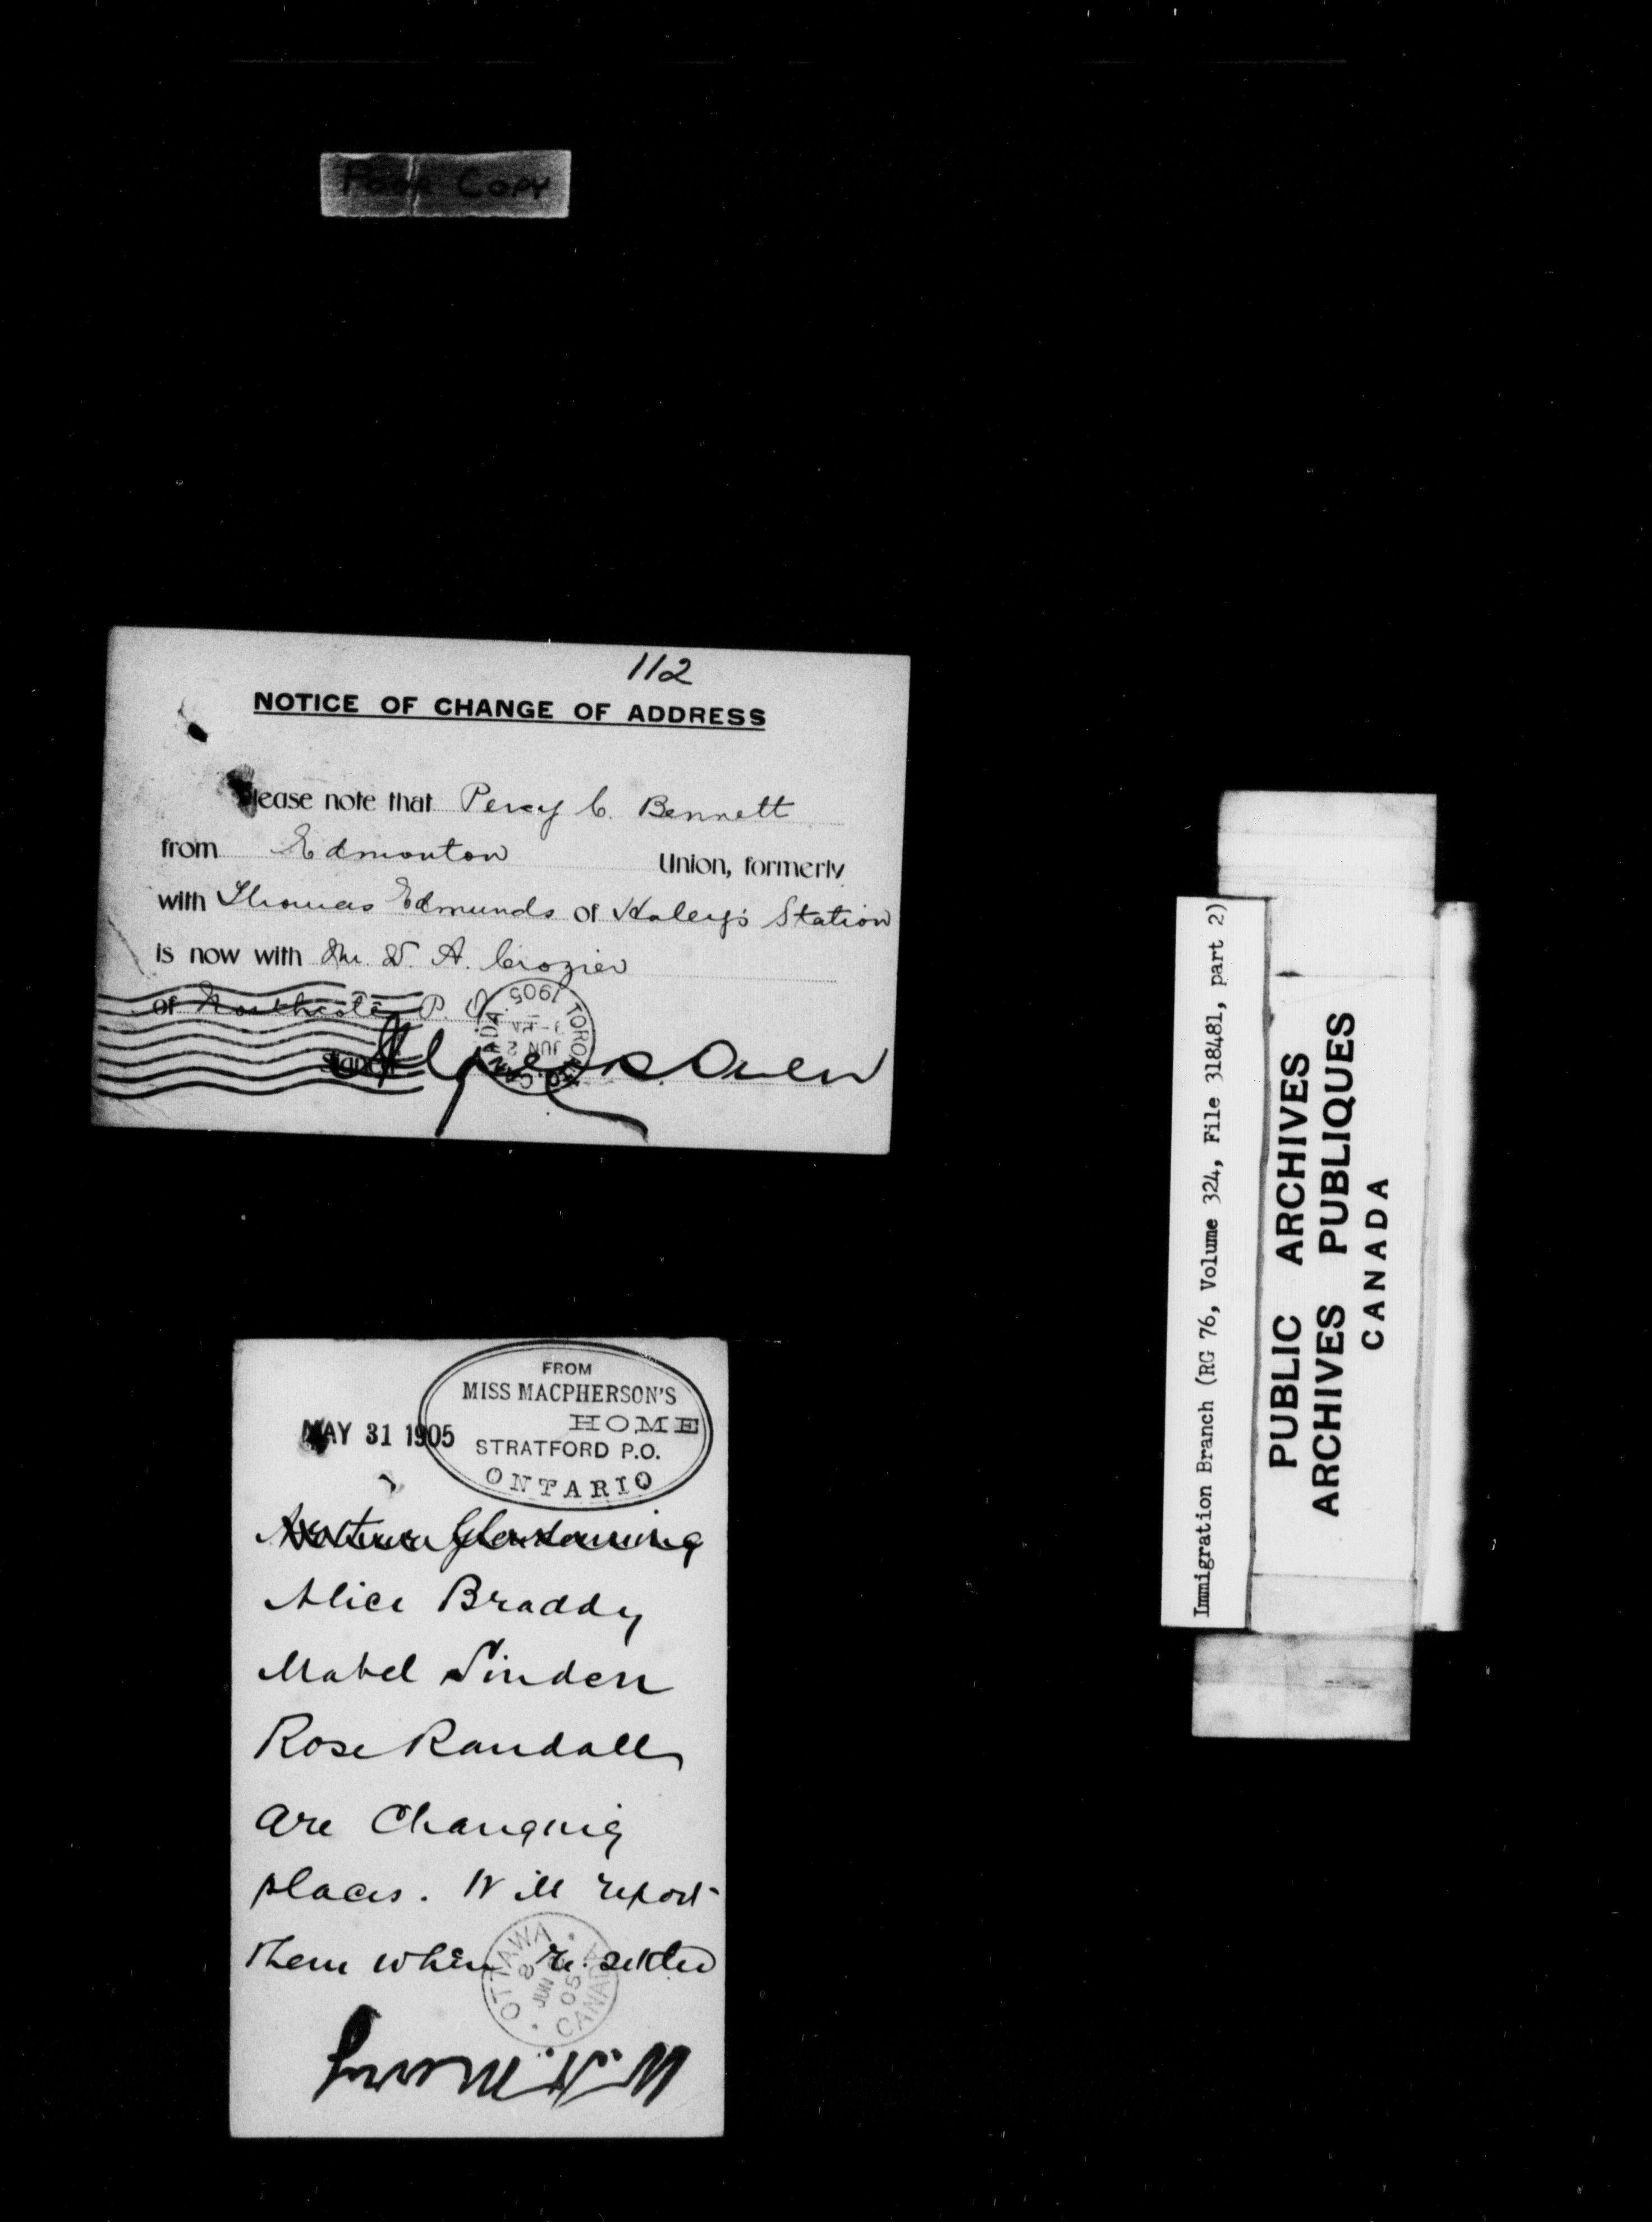 Poor Copy
112
NOTICE OF CHANGE OF ADDRESS
Please note that Percy C. Bennett
from Edmonton Union, formerly
with Thomas Edmunds of Haley's Station
is now with Mr. W. A. Crozier
of Northcote P. O.
Signed Owen
TORONTO, CANADA.
JUN 2
1905
FROM
MISS MACPHERSON'S
HOME
STRATFORD P.O.
ONTARIO
MAY 31 1905
Alice Braddy
Mabel Sinden
Rose Randall
are Changing
places. Will report
them when re.settled
OTTAWA
8
JUN
05
CANADA
Immigration Branch (RG 76, Volume 324, File 318481, part 2)
PUBLIC ARCHIVES
ARCHIVES PUBLIQUES
CANADA